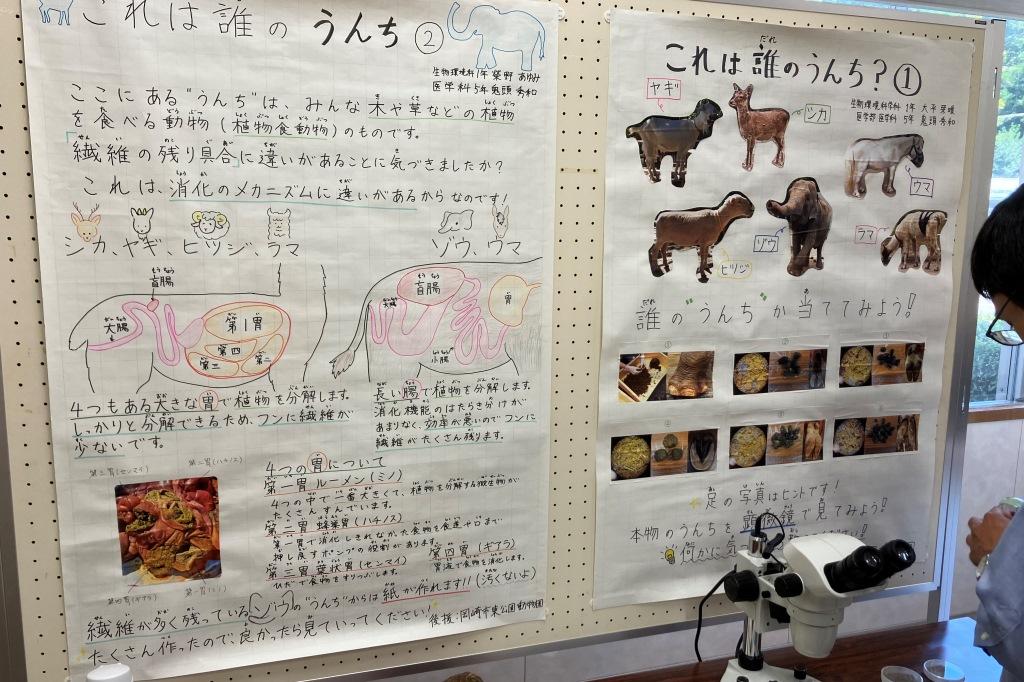 これは誰のうんち②
生物環境科1年 柴野 あゆみ
医学科5年 鬼頭 秀和
ここにある"うんち"は、みんな木や草などの植物
を食べる動物(植物食動物)のものです。
「繊維の残り具合」に違いがあることに気づきましたか?
これは、消化のメカニズムに違いがあるからなのです!
シカ、ヤギ、ヒツジ、ラマ
盲腸
大腸
第1胃
第四
第三
第二
4つもある大きな胃で植物を分解します。
しっかりと分解できるため、フンに繊維が
少ないです。
ゾウ、ウマ
盲腸
大腸
胃
小腸
長い腸で植物を分解します。
消化機能のはたらき分けが
あまりなく、効率が悪いのでフンに
繊維がたくさん残ります。
第三胃(センマイ)
第二胃(ハチノス)
第四胃(ギアラ)
第一胃(ミノ)
4つの胃について
第一胃 ルーメン(ミノ)
4つの中で一番大きくて、植物を分解する微生物が
たくさんすんでいます。
第二胃 蜂巣胃(ハチノス)
第一胃で消化しきれなかった食物を食道やロまで
押し戻すポンプの役割があります。
第三胃 葉状胃(センマイ)
ひだで食物をすりつぶします。
第四胃(ギアラ)
胃液で食物を消化します。
繊維が多く残っているゾウの"うんち"からは紙が作れます!!(汚くないよ)
たくさん作ったので、良かったら見ていってください!
後援:岡崎市東公園動物園
これは誰のうんち?①
生物環境科学科 1年 大平
医学部医学科 5年 鬼頭 秀和
ヤギ
シカ
ウマ
ヒツジ
ゾウ
ラマ
誰の"うんち"か当ててみよう!
①
②
③
④
⑤
⑥
足の写真はヒントです!
本物のうんちを顕微鏡で見てみよう!!
何かに気
ださい!!